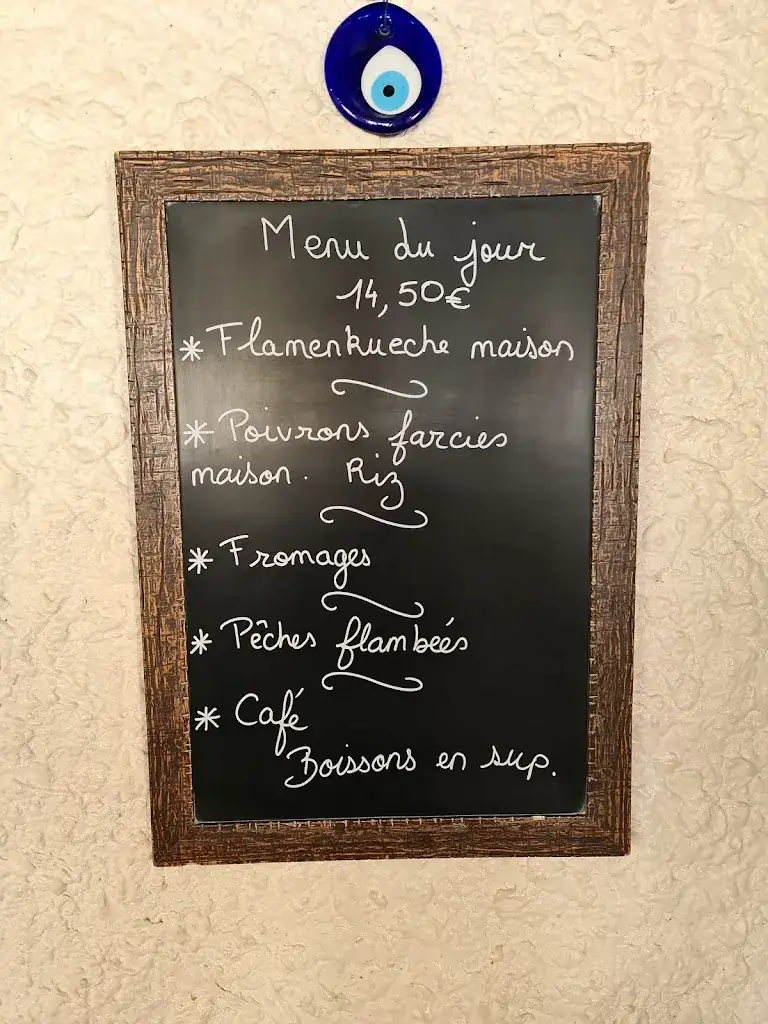 Menu du jour
14,50€
* Flamenkueche maison
* Poivrons farcies
maison. Riz
* Fromages
* Pêches flambeés
* Café
Boissons en sup.